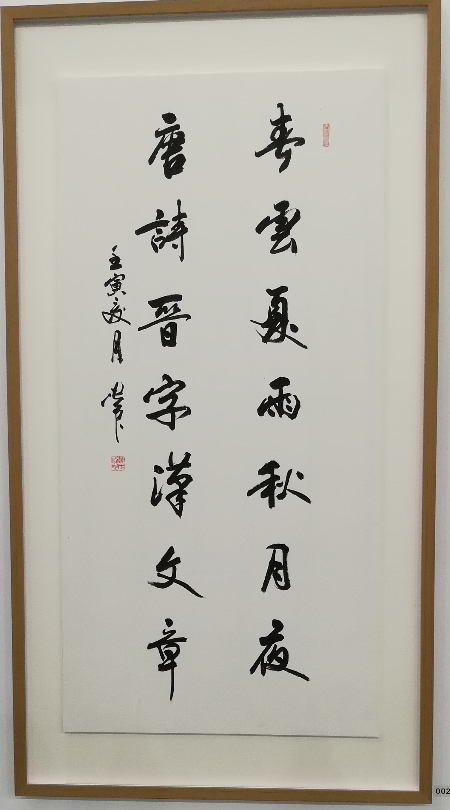 春雲夏雨秋月夜
唐詩晉字漢文章
壬寅夏月
002